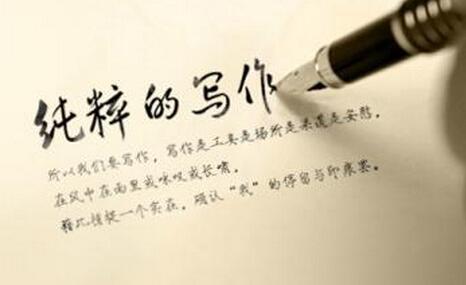 纯粹的写作
所以我们要写作，写作是工具是场所是渠道是安慰，
在风中在雨里或咏叹或长啸。
藉此捕捉一个实在，确认“我”的停留与印痕。